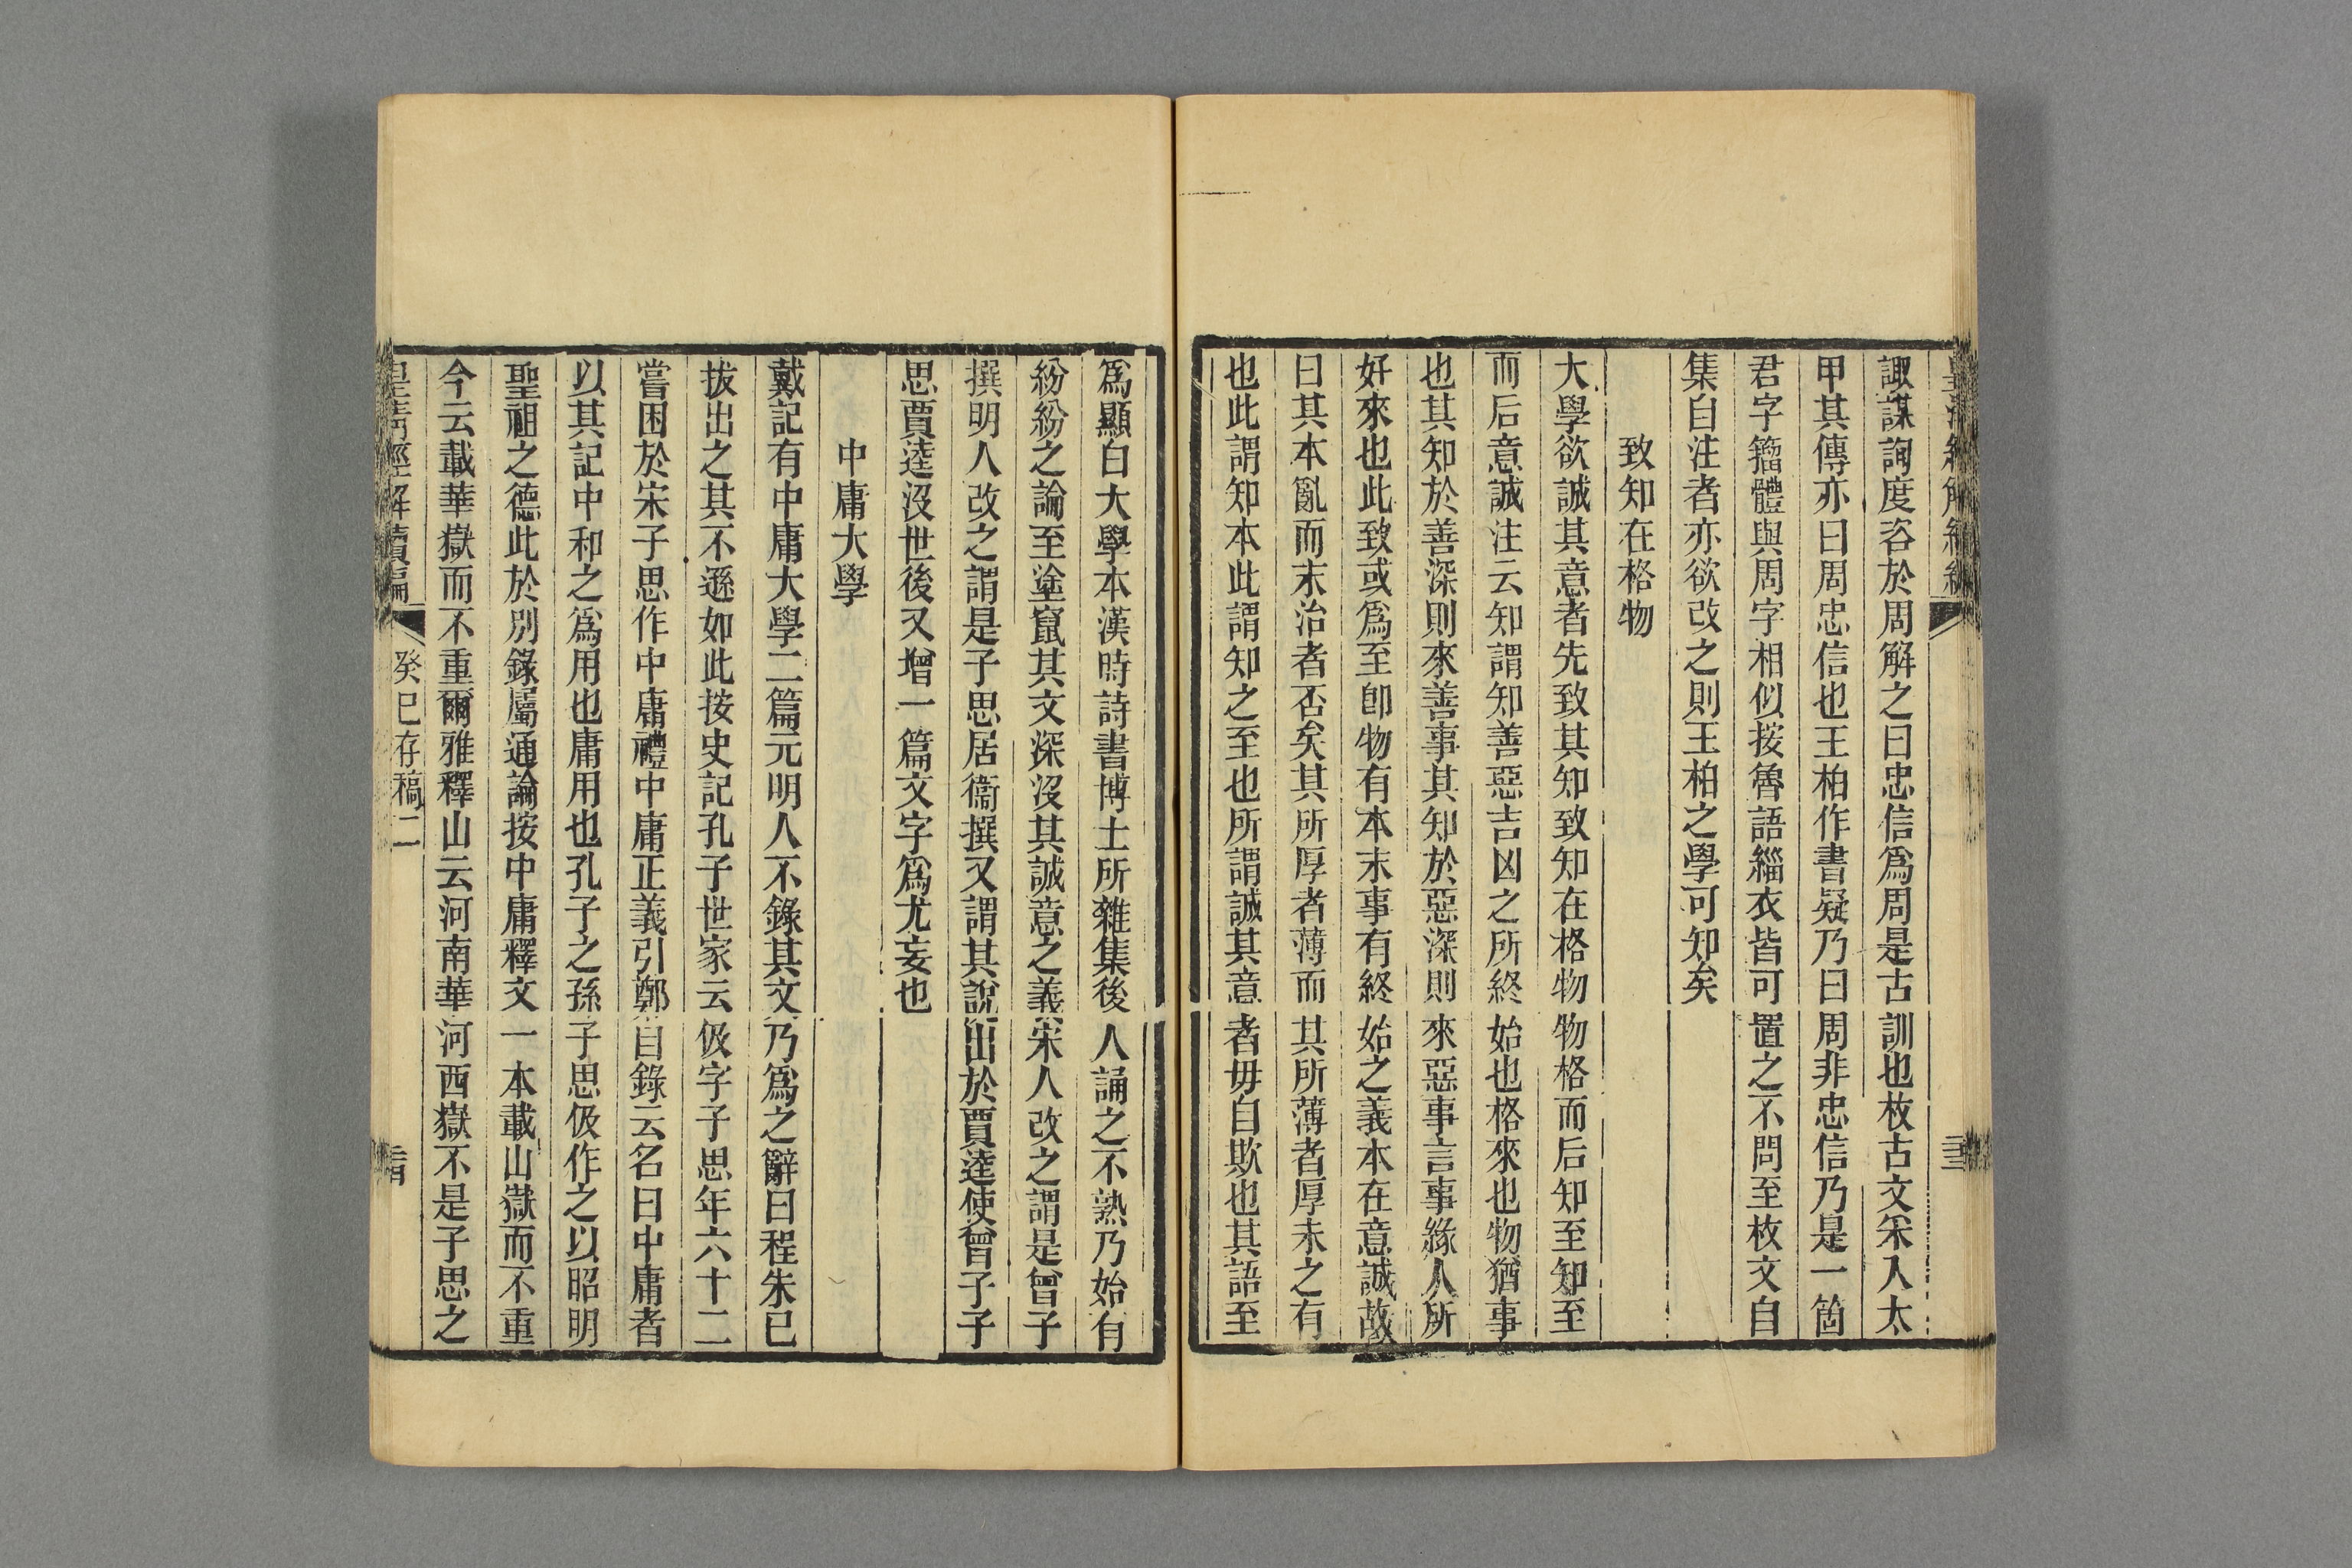 諏謀詢度咨於周解之曰忠信爲周是古訓也枚古文采入太
甲其傳亦曰周忠信也王柏作書疑乃曰周非忠信乃是一箇
君字籀體與周字相似按魯語緇衣皆可置之不問至枚文自
集自注者亦欲改之則王柏之學可知矣
致知在格物
大學欲誠其意者先致其知致知在格物物格而后知至知至
而后意誠注云知謂知善惡吉凶之所終始也格來也物猶事
也其知於善深則來善事其知於惡深則來惡事言事緣人所
好來也此致或爲至卽物有本末事有終始之義本在意誠故
曰其本亂而末治者否矣其所厚者薄而其所薄者厚未之有
也此謂知本此謂知之至也所謂誠其意者毋自欺也其語至
爲顯白大學本漢時詩書博士所雜集後人誦之不熟乃始有
紛紛之論至塗竄其文深沒其誠意之義宋人改之謂是曾子
撰明人改之謂是子思居衞撰又謂其說出於賈逵使曾子子
思賈逵沒世後又增一篇文字爲尤妄也
中庸大學
戴記有中庸大學二篇元明人不錄其文乃爲之辭曰程朱已
拔出之其不遜如此按史記孔子世家云伋字子思年六十二
嘗困於宋子思作中庸禮中庸正義引鄭目錄云名曰中庸者
以其記中和之爲用也庸用也孔子之孫子思伋作之以昭明
聖祖之德此於別錄屬通論按中庸釋文一本載山嶽而不重
今云載華嶽而不重爾雅釋山云河南華河西嶽不是子思之
皇淸經解續編 癸巳存稿二